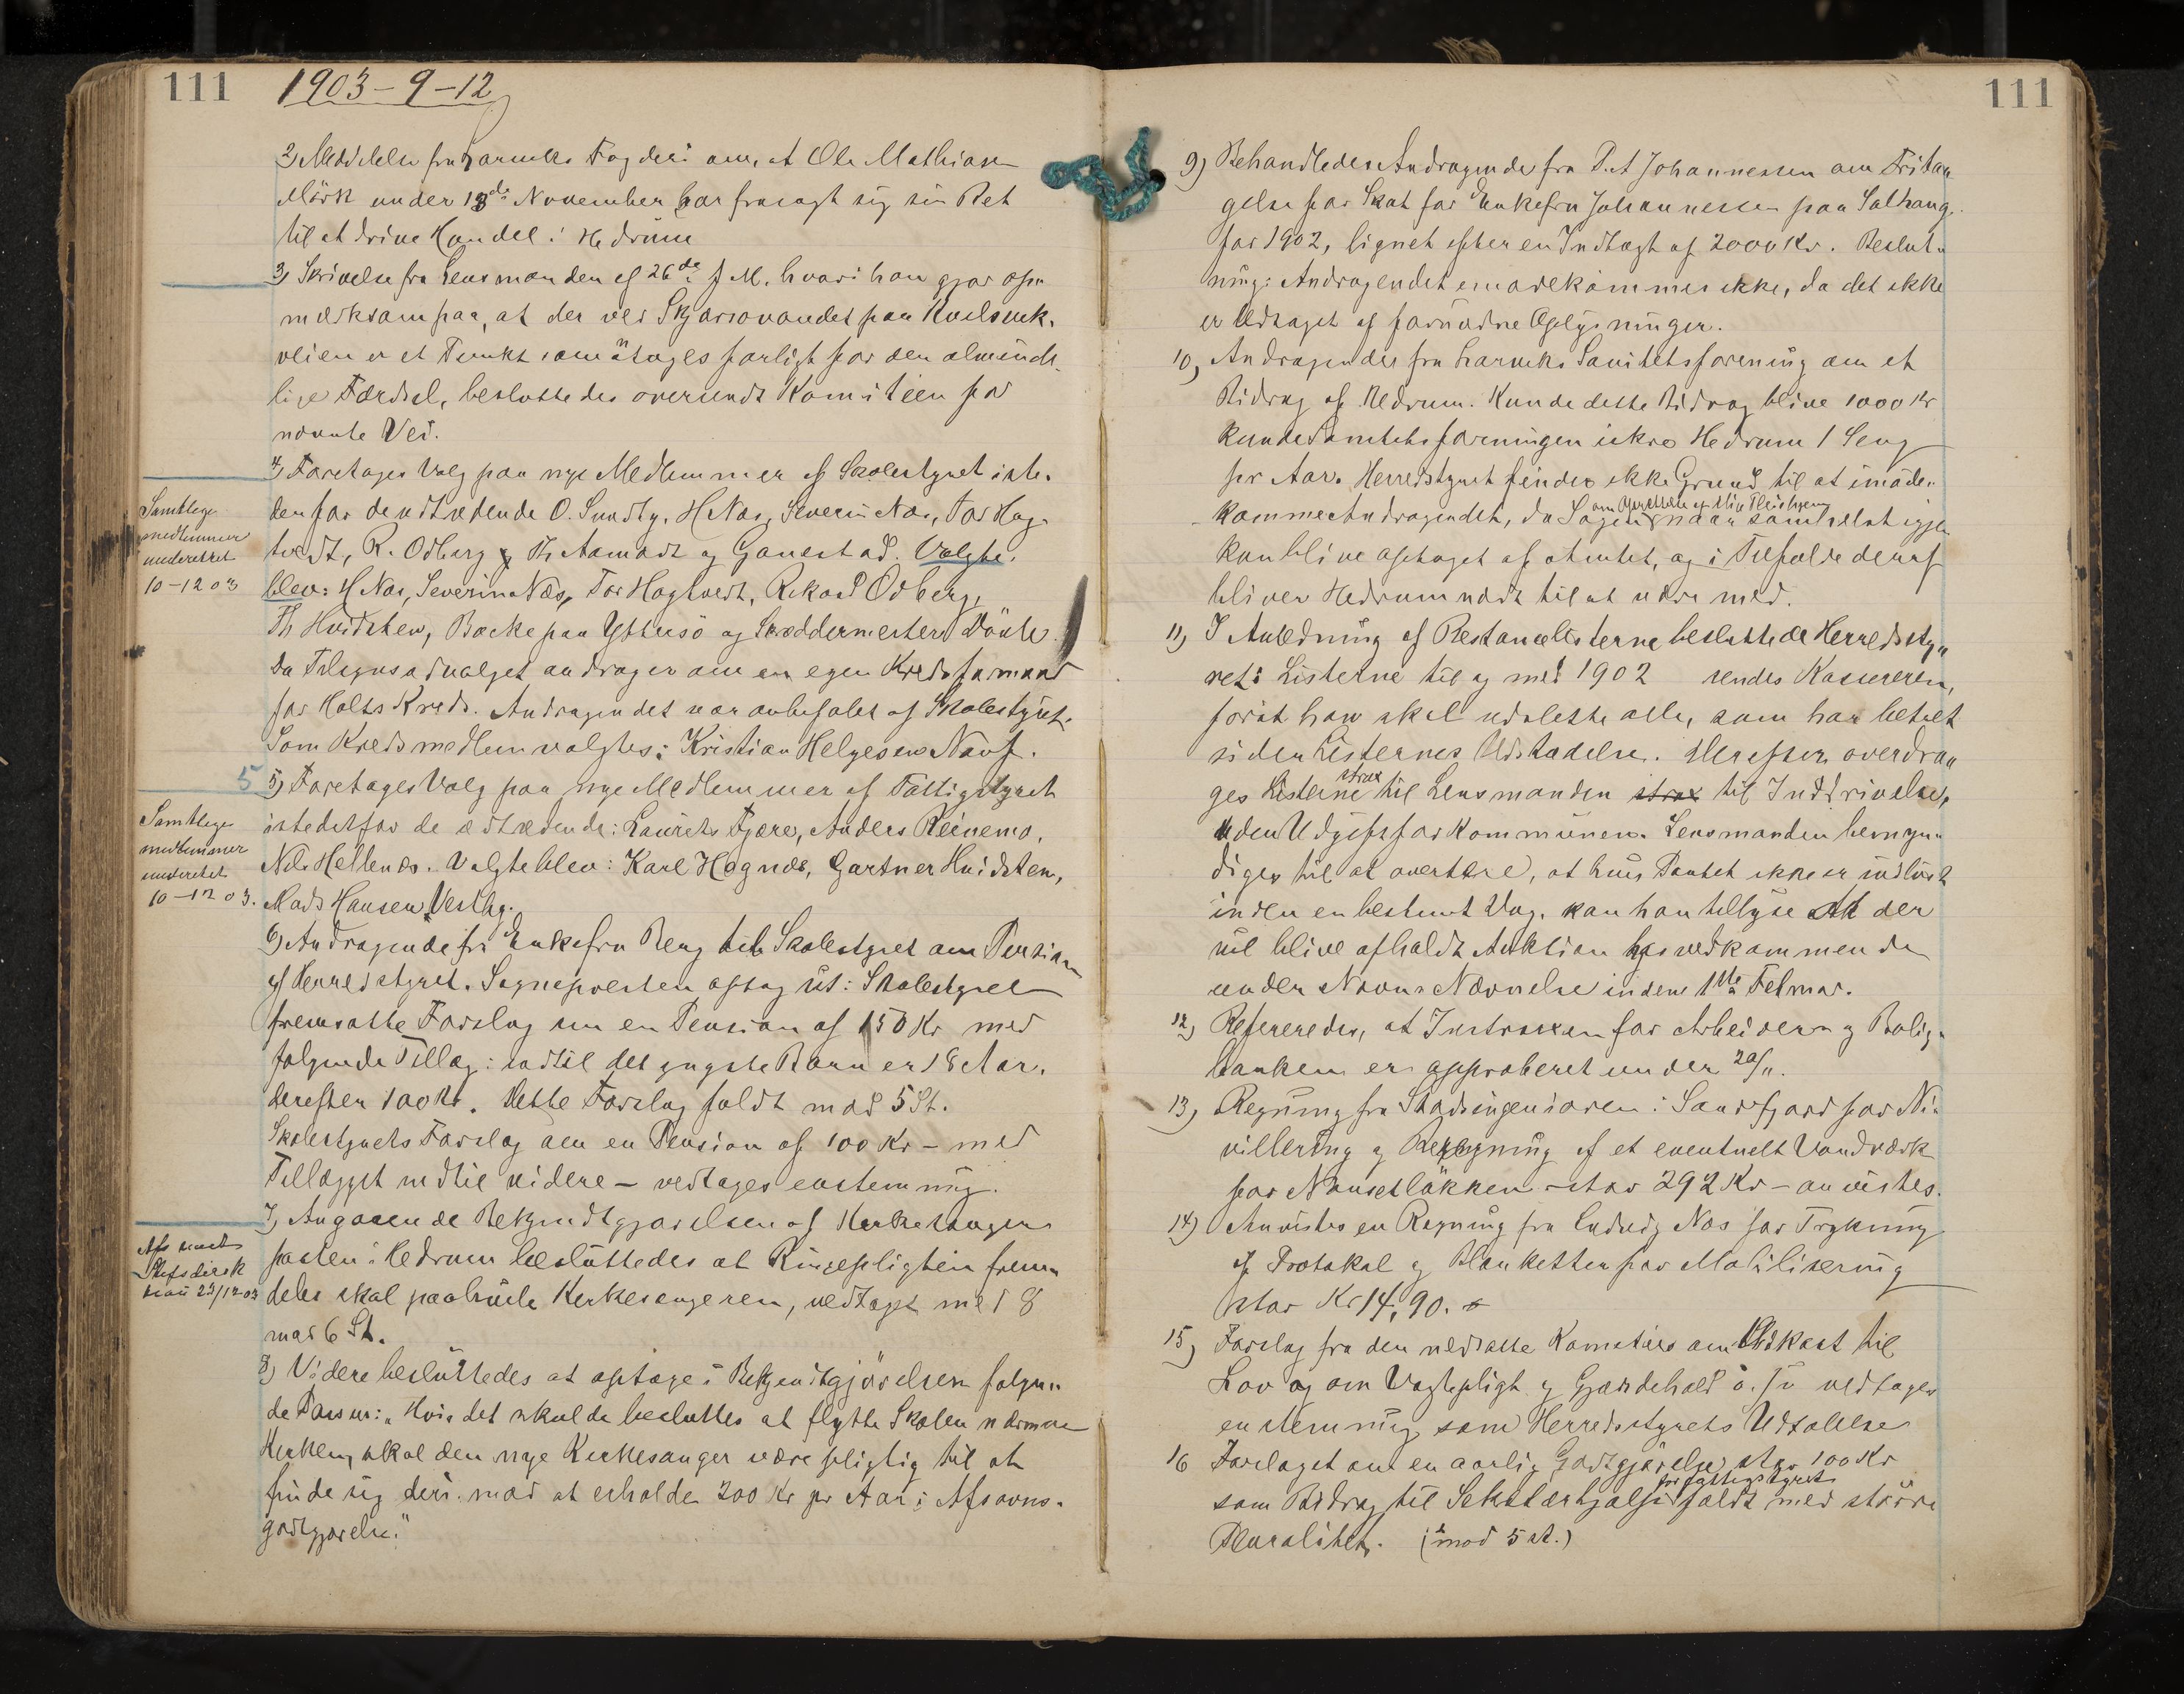 111
1903-9-12
2) Meddelelse fra Larviks Fogderi om, at Ole Mathisen
Mörk under 13de November har frasagt sig sin Ret
til at drive Handel i Hedrum
3) Skrivelse fra Lensmanden af 26de f.M. hvori han gjør op-
mærksom paa, at der ved Skjærsovandet paa Kvelsvek-
veien er et Punkt som antages farligt for den alminde-
lige Færdsel, besluttedes oversendt Komiteen for
nævnte Vei.
4) Foretages Valg paa nye Medlemmer af Skolestyret iste-
den for de udtrædende O. Sundby, H. Næs, Severin Næs, Tor Hag-
tvedt, R. Odberg og Th. Aamodt og Gonestad. Valgte
blev: H. Næs, Severin Næs, Tor Hagtvedt, Rikard Odberg,
Th Hvidsten, Bakke paa Yttersö og Skræddermester Dönte.
Da Tilsynsudvalget andrager om en egen Kredsformand
for Holts Kreds. Andragendet var anbefalet af Skolestyret.
Som Kredsmedlem valgtes: Kristian Helgesen Nauf.
5
5) Foretages Valg paa nye Medlemmer af Fattigstyret
istedetfor de udtrædende: Laurits Fjære, Anders Reinemo,
Nils Hellenes. Valgte blev: Karl Hagnæs, Gartner Hvidsten,
Mads Hansen Vestby.
6) Andragende fra Enkefru Berg til Skolestyret om Pension
af Herredstyret. Sognepresten optog det: Skolestyret
fremsatte Forslag om en Pension af 150 Kr med
følgende Tillæg: indtil det yngste Barn er 18 Aar,
derefter 100 Kr. Dette Forslag faldt mod 5 St.
Skolestyrets Forslag om en Pension af 100 Kr – med
Tillægget indtil videre – vedtages enstemmig.
7) Angaaende Bekjendtgjørelsen af Kirkesanger-
posten i Hedrum besluttedes at Ringepligten frem-
deles skal paahvile Kirkesangeren, vedtaget med 8
mod 6 St.
8) Videre besluttedes at optage i Bekjendtgjörelsen følgen-
de Passus: „Hvis det skulde besluttes at flytte Skolen nærmere
Kirken, skal den nye Kirkesanger være pligtig til at
finde sig deri mod at erholde 200 Kr pr Aar i Afsavns-
godtgjørelse."
Samtlige
medlemmer
underrettet
10-12 03
Samtlige
medlemmer
underrettet
10-12 03.
Afs sendt
Stiftsdirek
tion 23/12 03
111
9) Behandledes Andragende fra P. A Johannessen om Fritag-
gelse for Skat for Enkefru Johannessen paa Solhaug
for 1902, lignet efter en Indtægt af 2000 Kr. Beslut-
ning: Andragendet imødekommes ikke, da det ikke
er ledsaget af fornødne Oplysninger.
10) Andragende fra Larviks Sanitetsforening om et
Bidrag af Hedrum. Kunde dette Bidrag blive 1000 Kr
kunde Sanitetsforeningen sikre Hedrum 1 Seng
pr Aar. Herredstyret finder ikke Grund til at imøde-
komme Andragendet, da Sagen om Oprettelse af slig Pleiehjem naar somhelst igjen
kan blive optaget af Amtet, og i Tilfælde deraf
bliver Hedrum nødt til at være med.
11) I Anledning af Restancelisterne besluttede Herredsty-
ret: Listerne til og med 1902 sendes Kassereren,
forat han skal udslette alle, som har betalt
siden Listernes Udstædelse. Derefter overdra-
ges Listerne strax til Lensmanden strax til Inddrivelse,
uden Udgift for Kommunen. Lensmanden bemyn-
diges til at avertere, at hvis Pantet ikke er indlöst
inden en bestemt Dag, kan han tillyse At der
vil blive afholdt Auktion hos vedkommende
under Navns Nævnelse inden 1ste Februar.
12) Refereredes, at Instruxen for Arbeider- og Bolig-
banken er approberet under 20/11.
13) Regning fra Stadsingeniøren i Sandefjord for Ni-
vellering og Beregning af et eventuelt Vandværk
for Nansetlökken – stor 292 Kr – anvistes.
14) Anvistes en Regning fra Ludvig Næs for Trykning
af Protokol og Blanketter for Mobilisering
stor Kr 14,90.
15) Forslag fra den nedsatte Komite om Udkast til
Lov og om Vogtepligt og Gjærdehold o.s.v vedtages
enstemmig som Herredsstyrets Udtalelse
16 Forslaget om en aarlig Godtgjørelse stor 100 Kr
som Bidrag til Sekretærhjælp for fattigstyret faldt med større
Pluralitet. (mod 5 st.)